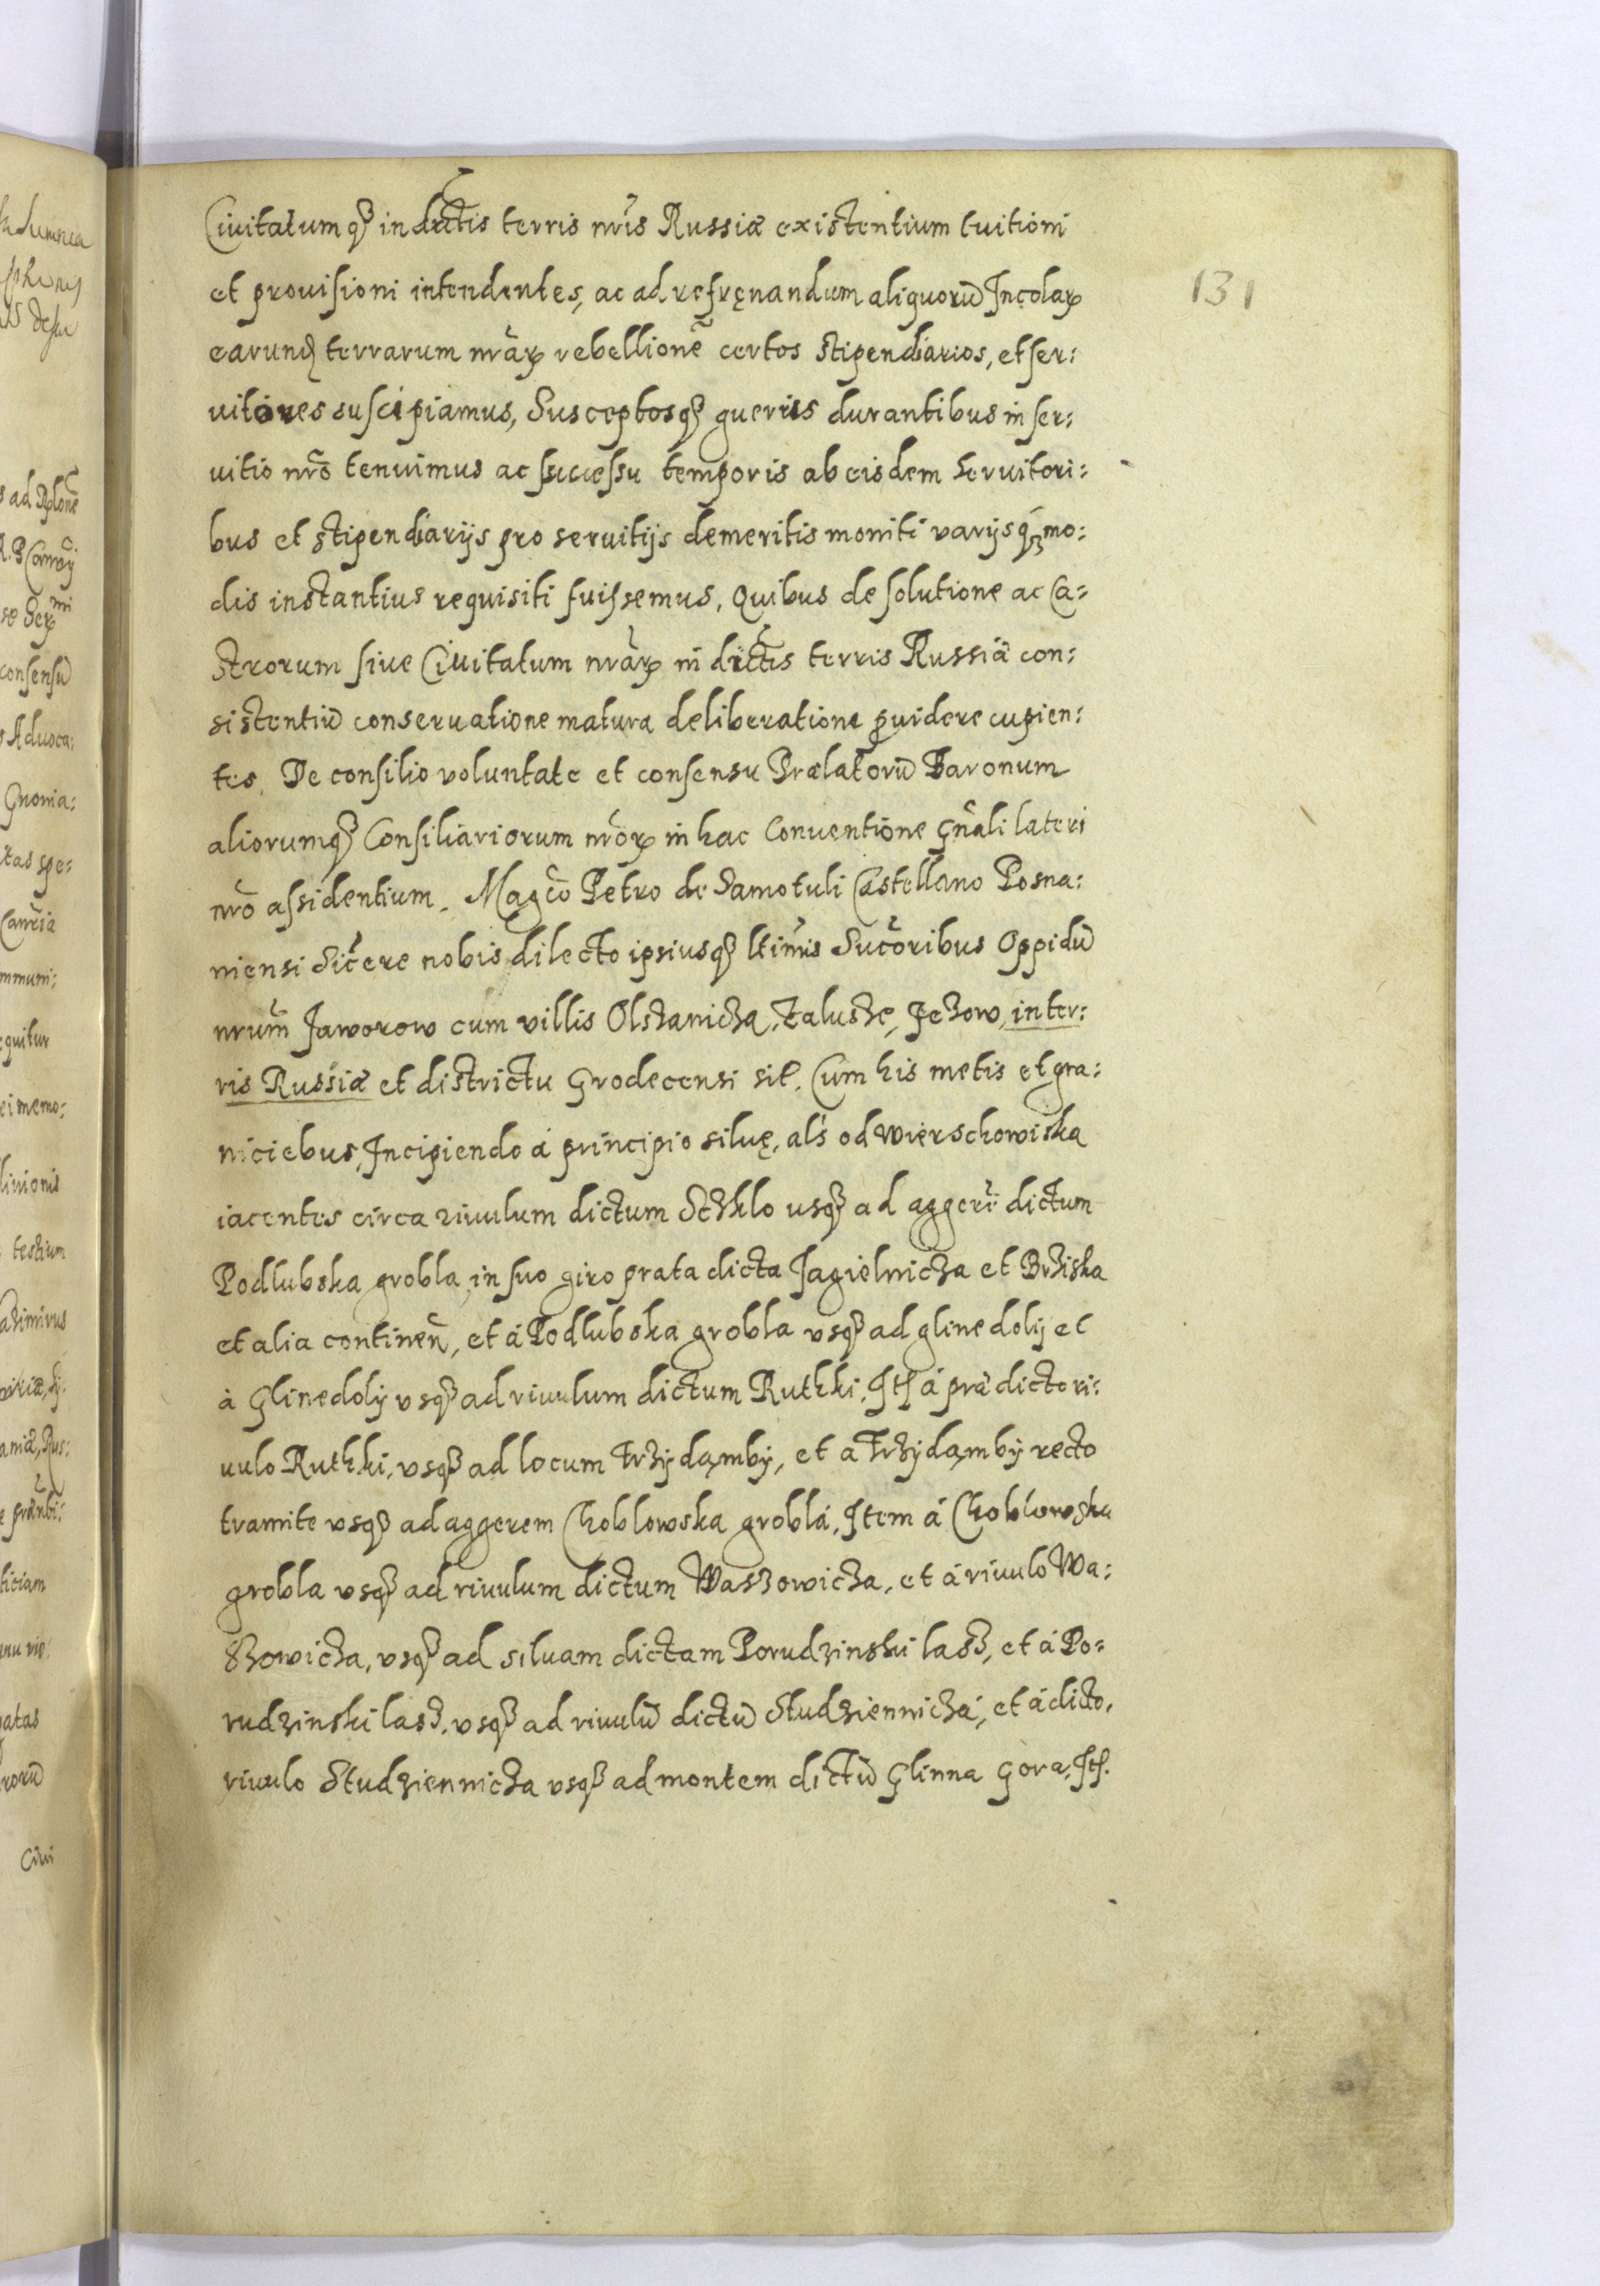 Ciuitatumq̃ in dictis terris nr̃is Russiæ existentium tuitioni
et prouisioni intendentes, ac ad refręnandum aliquorũ Incolaꝝ
131
earund terrarum nr̃aꝝ rebellionẽ certos stipendiarios, et ser:
uitores suscipiamus, Susceptosq̃ guerris durantibus in ser:
uitio nr̃o tenuimus ac successu temporis ab eisdem Seruitori:
bus et stipendiarijs pro seruitijs demeritis moniti varijsq̃ mo:
dis instantius requisiti fuissemus, Quibus de solutione ac Ca:
strorum siue Ciuitatum nr̃aꝝ in dictis terris Russiæ con:
sistentiũ conseruatione matura deliberatione ꝓuidere cupien:
tes. De consilio voluntate et consensu Prælatorũ Baronum
aliorumq̃ Consiliariorum nr̃oꝝ in hac Conuentione gñali lateri
nr̃o assidentium. Magco Petro de Samotuli Castellano Posna:
niensi Sicere nobis dilecto ipsiusq̃ ltimis Sucoribus Oppidũ
nrum̃ Jaworow cum villis Olszanicza, Zaluszhe, Jezow, in ter:
ris Russiæ et districtu Grodecensi sit. Cum his metis et gra:
niciebus, Incipiendo á principio siluę, als od wierschowiska
iacentes circa riuulum dictum Sczklo usq̃ ad aggerẽ dictum
Podlubska grobla, in suo giro prata dicta Jagielnicza et Brziska
et alia continen̄, et á Podlubska grobla vsq̃ ad glinedolij et
á Glinedolij vsq̃ ad riuulum dictum Ruthki, It. á prædicto ri:
uulo Ruthki, vsq̃ ad locum Trzijdąmbij, et a Trzijdąmbij recto
tramite vsq̃ ad aggerem Choblowska grobla, Item á Choblowska
grobla vsq̃ ad riuulum dictum Waszowicza, et á riuulo Wa:
szowicza, vsq̃ ad siluam dictam Porudzinski lasz, et á Po:
rudzinski lasz, vsq̃ ad riuulũ dictũ Studziennicza, et á dicto,
riuulo Studziennicza vsq̃ ad montem dictũ Glinna Gora, It.